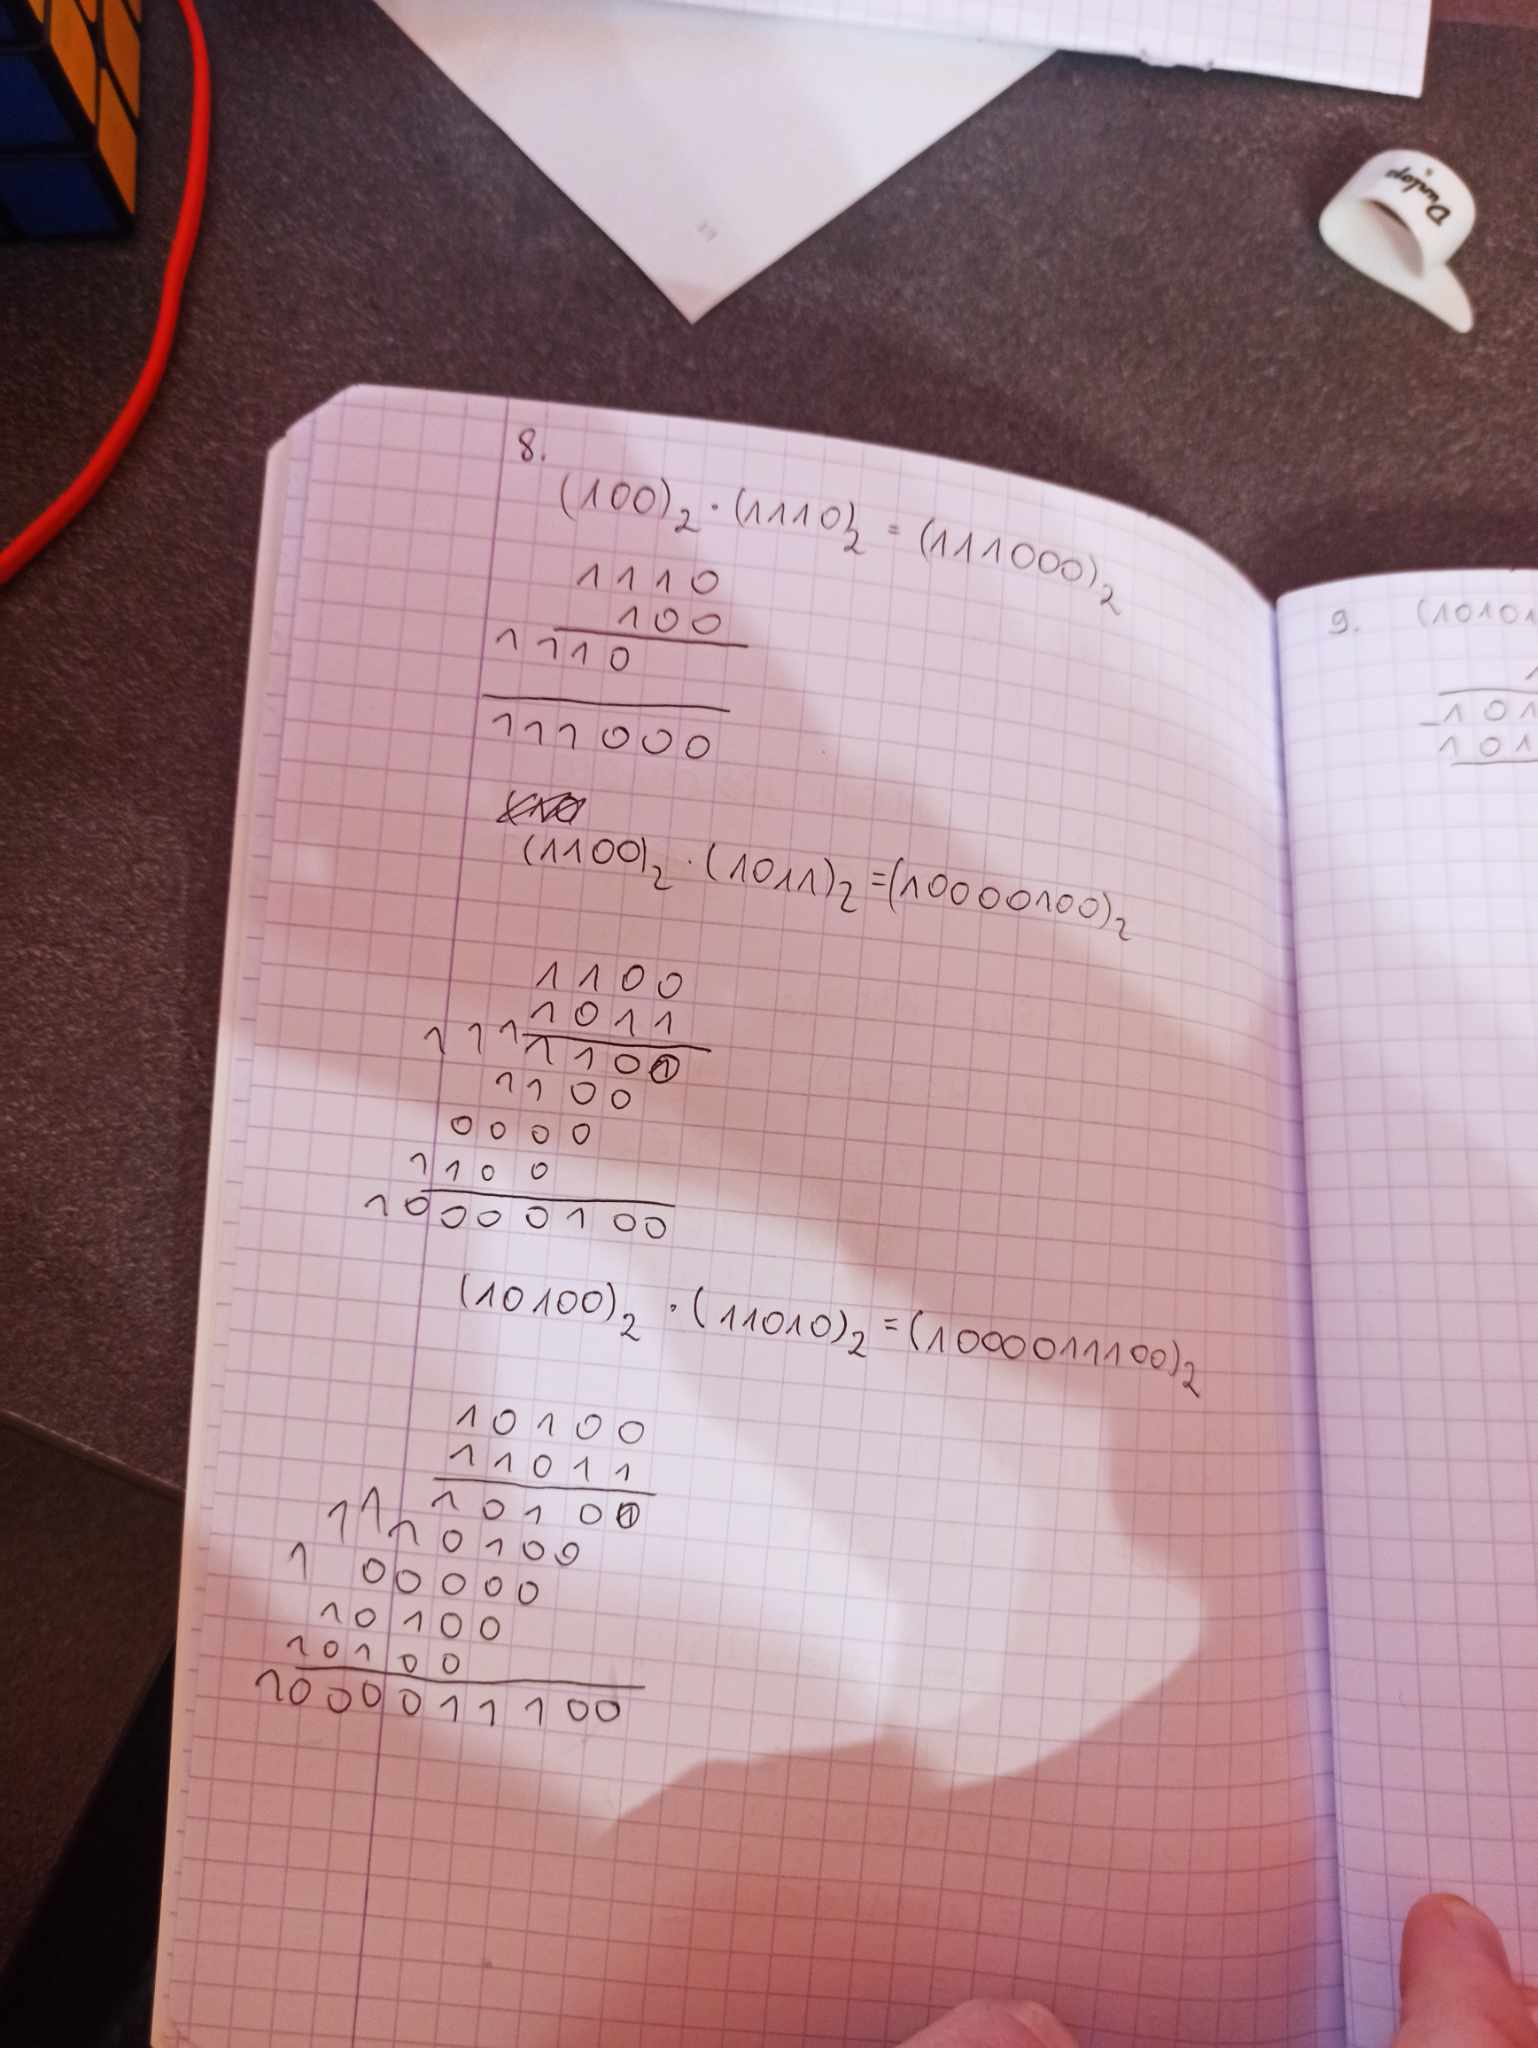 Dunlop
8.
(100)₂ · (1110)₂ = (111000)₂
1110
100
1110
111000
(1100)₂ · (1011)₂ = (10000100)₂
1100
1011
111 1100
1100
0000
1100
10000100
(10100)₂ · (11010)₂ = (1000011100)₂
10100
11011
10100
11 10100
1 00000
10100
10100
1000011100
9. (10101
1
-101
101